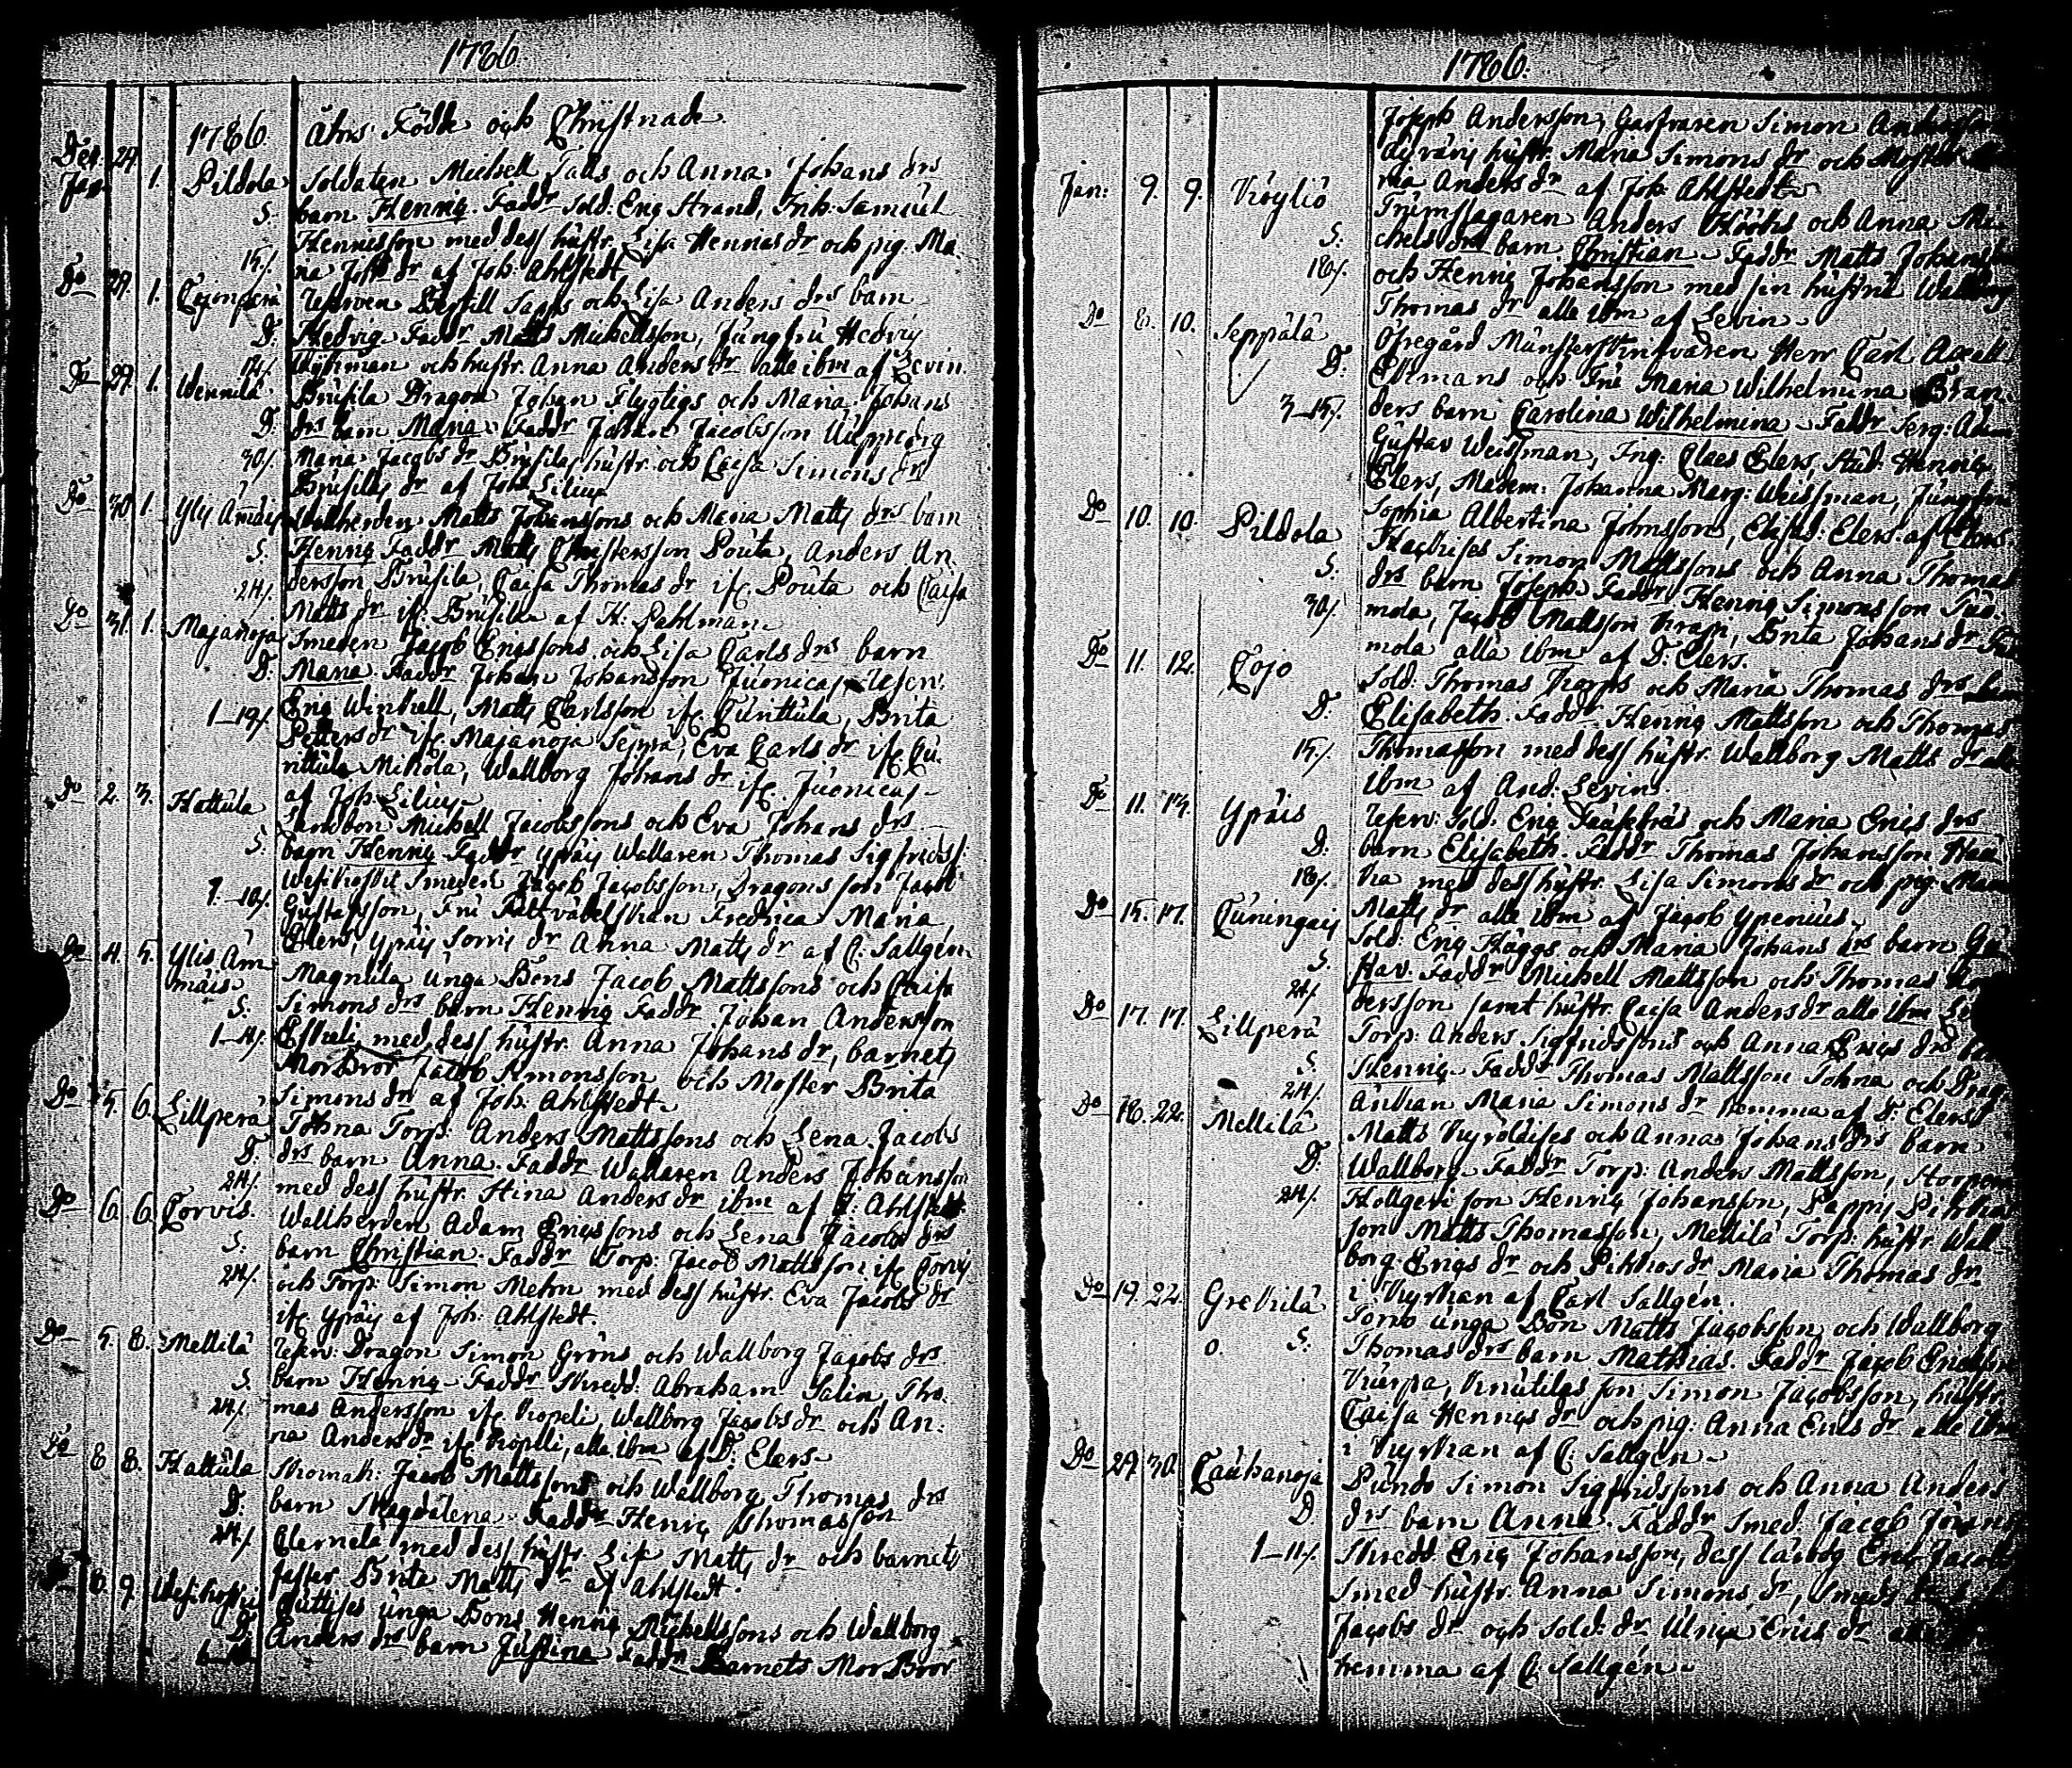 1786.
1786. Åhrs Födde och Christnade
Dec: 29. Jan: 1. Pildola Soldaten Michell Talls och Anna Johans drs
S. barn Henric. Faddr Sold: Eric Strand, Inh: Samuel
Henricsson med dess hustr. Lisa Henrics dr och pig. Ma
15/. ria Josephs dr af Joh: Ahlstedt
Do 29. 1. Bertill Sapps och Lisa Anders drs barn
D. Hedvig. Faddr Matts Michellsson, Jungfru Hedvig
och hustr. Anna Anders dr alla ibm af Levin.
Do 29. 1. Wennilä Brusila Dragon Johan Flygtigs och Maria Johans
D. drs barn Maria. Faddr Johan Jacobsson
30/. Maria Jacobs dr Brusilas hustr. och Caisa Simons dr
Brusilas dr af Joh: Lilius
Do 30. 1. Yli Ämäis Wallherden Matts Johanssons och Maria Matts drs barn
S. Henric Faddr Matts Christersson Pouta, Anders An,
24/. dersson Brusila, Caisa Thomas dr ifr. Pouta och Caisa
Matts dr ifr. Brusila af H: Pahlman.
Do 31. 1. Majanoja Smeden Jacob Ericssons och Lisa Carls drs barn
D. Maria. Faddr Johan Johansson Juonicas
1_19/. Eric Winkell, Matts Carlsson ifr. Cunttula, Brita
Petters dr ifr. Majanoja Seppä, Eva Carls dr ifr. Cu,
nttula Mikola, Wallborg Johans dr ifr. Juonicas
af Joh: Lilius.
Do 2. 3. Hattula Landbon Michell Jacobssons och Eva Johans drs
S. barn Henric Faddr Ypäis Wallaren Thomas Sigfridss:
Wesikoskis Smeden Jacob Jacobsson, Dragons son Jacob
1_10/. Gustafsson, Fru Fältväbelskan Fredrica Maria
Elers, Ypäis Sorris dr Anna Matts dr af C: Sallgén
Do 4. 5. Ylis Äm
mäis Magnula unga Bons Jacob Mattssons och Caisa
S. Simons drs barn Henric Faddr Johan Andersson
Eskeli med dess hustr. Anna Johans dr, barnets
MorBror Jacob Simonsson och Moster Brita
Simons dr af Joh. Ahlstedt.
Do 5. 6. Lillperä Tohna Torp: Anders Mattssons och Lena Jacobs
D. drs barn Anna. Faddr Wallaren Anders Johansson
24/. med dess hustr. Stina Anders dr ibm af J: Ahlstedt
Do 6. 6. Torvis. Wallherden Adam Ericssons och Lena Jacobs drs
S. barn Christian. Faddr Torp: Jacob Mattsson ifr. Torvis
24/. och Torp: Simon Mehn med dess hustr. Eva Jacobs dr
ifr. Ypäis af Joh: Ahlstedt.
Do 5. 8. Mellilä Reserv: Dragon Simon Gröns och Wallborg Jacobs drs
S. barn Henric. Faddr Skredd: Abraham Salin, Tho,
24/. mas Andersson ifr. Kopeli, Wallborg Jacobs dr och An,
na Anders dr ifr. Kopeli, alla ibm af D: Elers.
Do 8. 8. Hattula Skomak: Jacob Mattssons och Wallborg Thomas drs
D. barn Magdalena. Faddr Henric Thomasson
24/. med dess hustr. Lisa Matts dr och barnets
faster Brita Matts dr af Ahlstedt.
8. 9. Wesikoski unga Bons Henric Michellssons och Wallborg
D. Anders drs barn Justina Faddr Barnets MorBror
1786.
Joseph Andersson, Gasfvaren Simon
hustr. Maria Simons dr och Moster
ria Anders dr af Joh: Ahlstedt
Jan: 9. 9. Köyliö Trumslagaren Anders Hööks och Anna Mi
S. chels drs barn Christian. Faddr Matts Johansson
18/. och Henric Johansson med sin hustru Wallborg
Thomas dr alla ibm af Levin.
Do 8. 10. Seppälä Öfregård Münsterskrifvaren Herr Carl Axel
D. Ekmans och Fru Maria Wilhelmina Bran
3_15/. ders barn Carolina Wilhelmina. Faddr Serg: Adam
Gustav Weissman, Ing: Claes Elers, Stud: Henric
Elers, Madem: Johanna Marg: Weissman, Jungfru
Sophia Albertina Johnsson, Elisab: Elers. af Elers
Do 10. 10. Pildola Simon Mattssons och Anna Thomas
S. drs barn Joseph. Faddr Henric Simonsson Tuo,
30/. mola, Jacob Mattsson Krapi, Brita Johans dr Tuo
mola alla ibm af D: Elers.
Do 11. 12. Cojo Sold: Thomas Trapps och Maria Thomas drs barn
D. Elisabeth. Faddr Henric Mattsson och Thomas
15/. Thomasson med dess hustr. Wallborg Matts dr alla
ibm af And: Levin.
Do 11. Ypäis Reserv: Sold: Eric och Maria Erics drs
D. barn Elisabeth. Faddr Thomas Johansson
18/. med dess hustr. Lisa Simons dr och pig. Maria
Matts dr alla ibm af Jacob Ypenius.
Do 15. 17. Cuningais Sold: Eric Kuggs och Maria Johans drs barn Gu
S. stav. Faddr Michell Mattsson och Thomas
24/. dersson samt hustr. Caisa Anders dr alla ibm
Do 17. 17. Lillperä Torp: Anders Sigfridssons och Anna Erics drs barn
S. Henric. Faddr Thomas Mattsson Tohna och Drag:
24/. Änkan Maria Simons dr hemma af D: Elers
Do 18. 22. Mellilä Matts Kyröläises och Anna Johans drs barn
D. Wallborg. Faddr Torp: Anders Mattsson, Storpens
24/. Hollgers son Henric Johansson, Pappis Pikkas
son Matts Thomasson, Mellilä Torp: hustr. Wall
borg Erics dr och Pikkos dr Maria Thomas dr
i Kyrkan af Carl Sallgén.
Do 19. 22. Grekilä unga Bon Matts Jacobsson och Wallborg
o. S. Thomas drs barn Mathias. Faddr Jacob Ericsson
Kuurpa, Knutilas son Simon Jacobsson, hustr.
Caisa Henrics dr och pig: Anna Erics dr alla ibm
i Kyrkan af C: Sallgén.
Do 29. 30. Cauhanoja Punds Simon Sigfridssons och Anna Anders
D. drs barn Anna. Faddr Smed: Jacob
1_11/. Skredd: Eric Johansson, dess lärpog Eric Jacobs
smed hustr. Anna Simons dr,
Jacobs dr och Sold: dr Ulrica Erics dr
hemma af C: Sallgén.